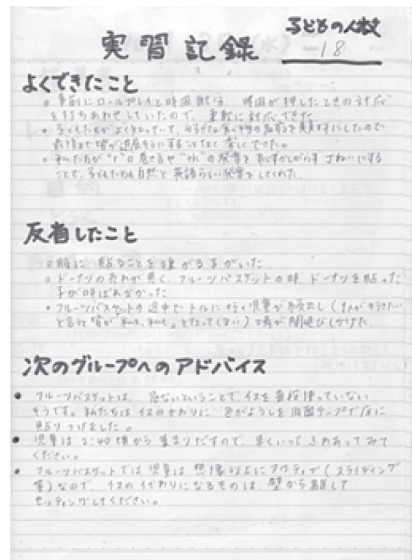 子どもの人数
実習記録 18
よくできたこと
事前にロールプレイと時間配分、時間が押したときの対応
を打ちあわせしていたので、柔軟に対応できた
子どもたちがよく知っていて、好きな食べ物の名前を題材にしたので
最後まで皆が退屈そうにすることなく楽しくできた。
私たちが"r"の巻き舌や"th"の発音を恥ずかしがらずていねいにする
ことで、子どもたちも自然と英語らしい発音をしてくれた
反省したこと
服に貼ることを嫌がる子がいた
ドーナツの売れが悪く、フルーツバスケットの時、ドーナツを貼った
子が呼ばれなかった
フルーツバスケットの途中でトイレに行く児童が続出し(1人が行きたい
と言うと皆が「私も、私も」となってしまい)
次のグループへのアドバイス
フルーツバスケットは、危ないということでイスを普段使っていない
そうです。私たちはイスのかわりに色がようしを両面テープで床に
貼りつけました。
児童は2:40頃から集まりだすので、早くいってふれあってみて
ください。
フルーツバスケットでは児童は想像以上にアクティブ(スライディング
等)なので、イスの代わりになるものは、壁から離して
セッティングしてください。